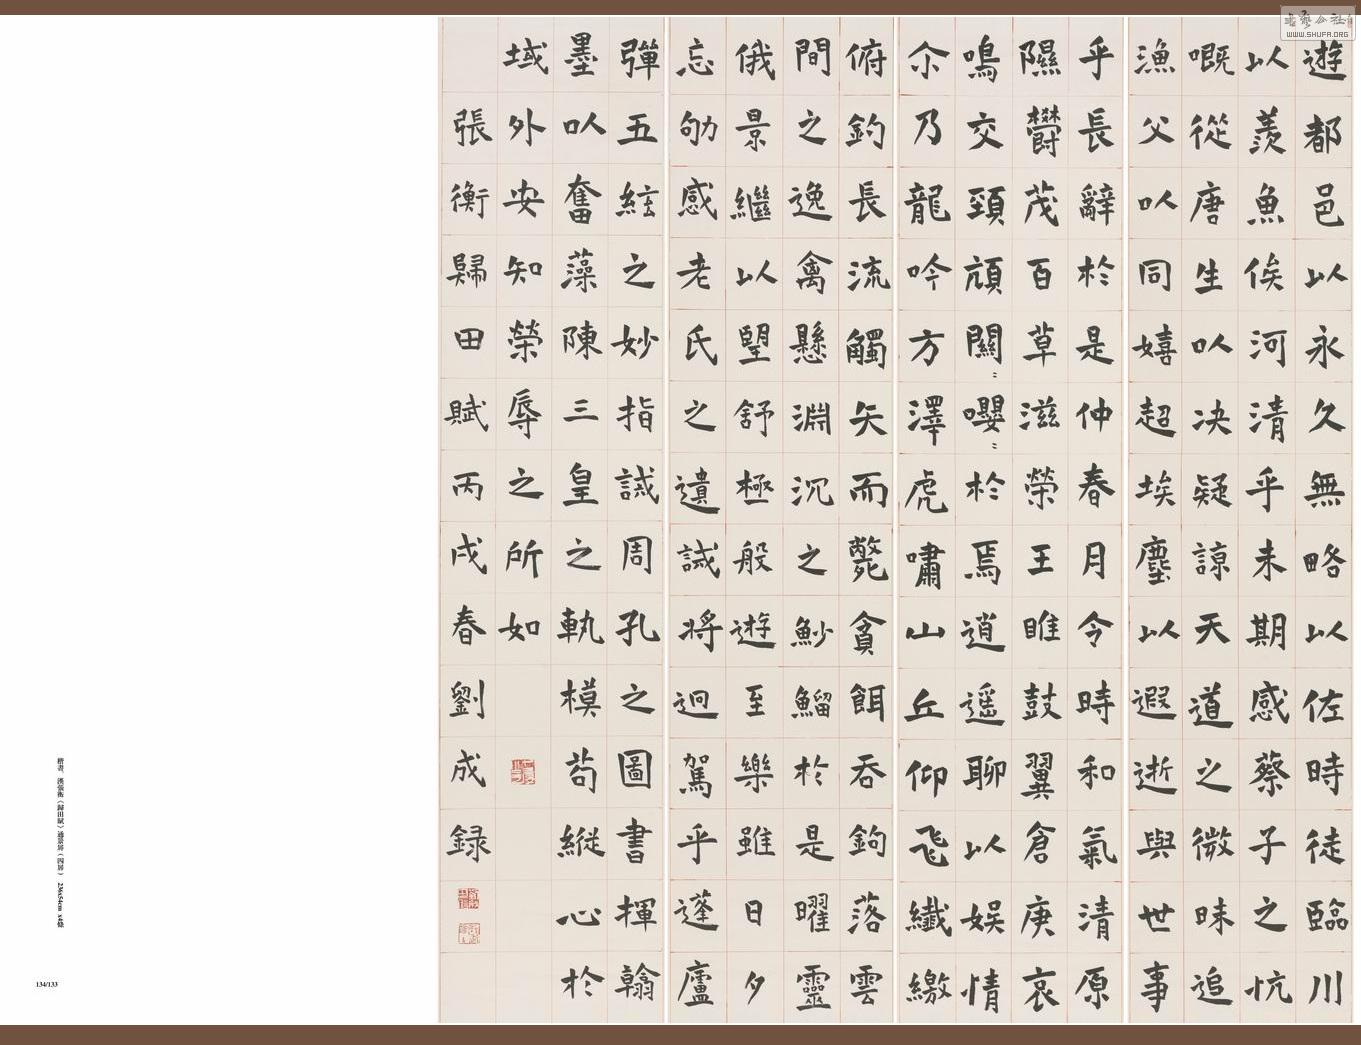 遊都邑以永久無略以佐時徒臨川
以羨魚俟河清乎未期感蔡子之忼
嘅從唐生以決疑諒天道之微昧追
漁父以同嬉超埃塵以遐逝與世事
乎長辭於是仲春月令時和氣清原
隰欝茂百草滋榮王睢鼓翼倉庚哀
鳴交頸頏關〻嚶〻於焉逍遥聊以娛情
尒乃龍吟方澤虎嘯山丘仰飞纖繳
俯釣長流觸矢而斃貪餌吞鉤落雲
間之逸禽懸淵沉之魦鰡於是曜靈
俄景繼以望舒極般遊至樂雖日夕
忘劬感老氏之遺誡將迥駕乎蓬廬
彈五絃之妙指誡周孔之圖書揮翰
墨以奮藻陳三皇之軌模苟縱心於
域外安知榮辱之所如
張衡歸田賦丙戌春劉成録
楷書　漢張衡《歸田賦》通景屏（四屏）　236x54cm x4條
134/133
WWW.SHUFA.ORG